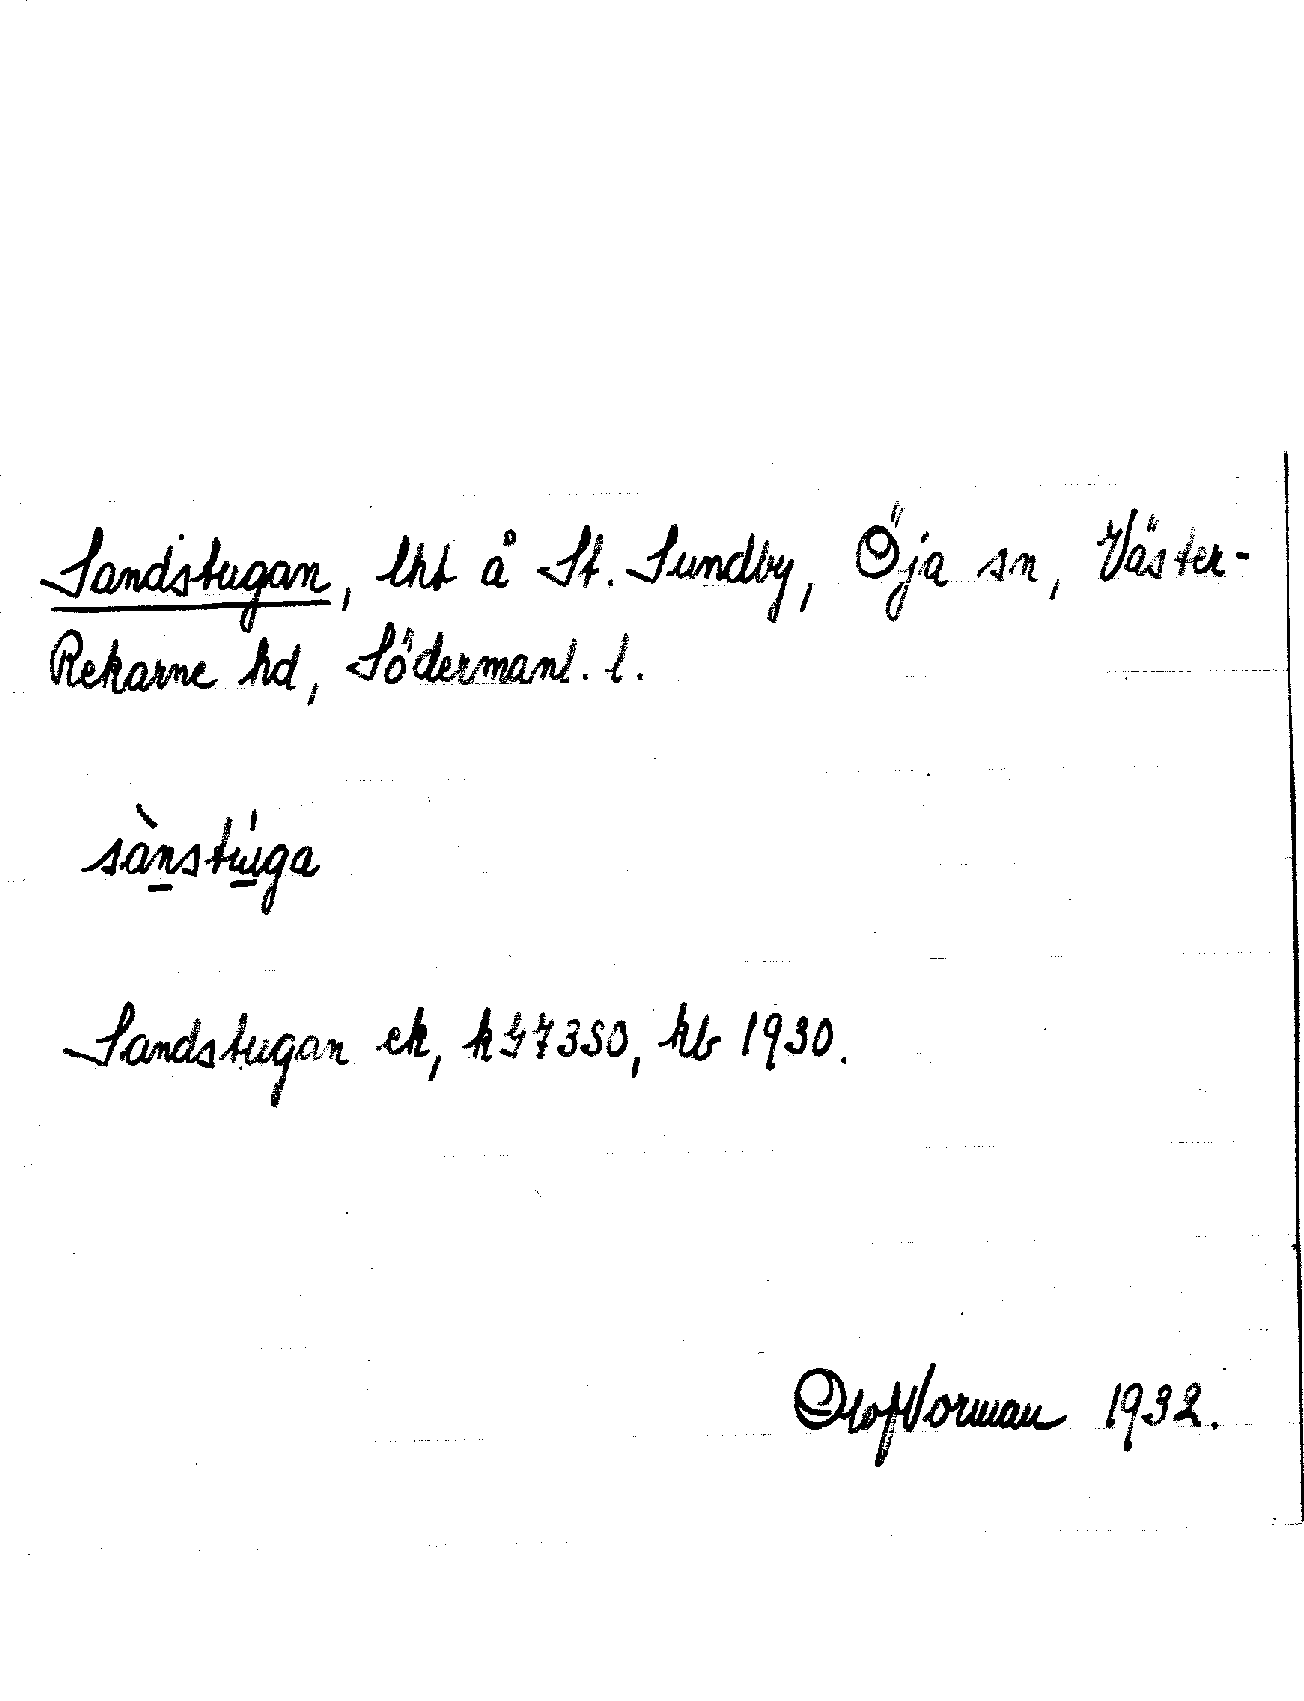 Sandstugan, lht å St. Sundby, Öja sn, Väster-
Rekarne hd, Södermanl. l.
sànstu̱ga
Sandstugan ek, kG7350, kb 1930.
Olof Vorman 1932.